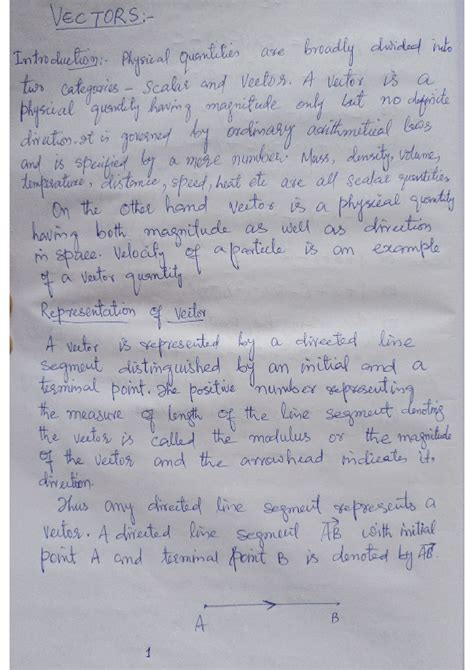 VECTORS:-
Introduction:- Physical Quantities are broadly divided into
two categories - Scalar and Vector. A Vector is a
physical quantity having magnitude only but no definite
direction. It is governed by ordinary arithmetical laws
and is specified by a mere number. Mass, density, volume,
temperature, distance, speed, heat etc are all scalar quantities
On the other hand vector is a physical quantity
having both magnitude as well as direction
in space. Velocity of a particle is an example
of a vector quantity
Representation of Vector
A vector is represented by a directed line
segment distinguished by an initial and a
terminal point. The positive number representing
the measure of length of the line segment denoting
the vector is called the modulus or the magnitude
of the vector and the arrowhead indicates its
direction.
Thus any directed line segment represents a
vector. A directed line segment AB with initial
point A and terminal point B is denoted by AB.
A B
1